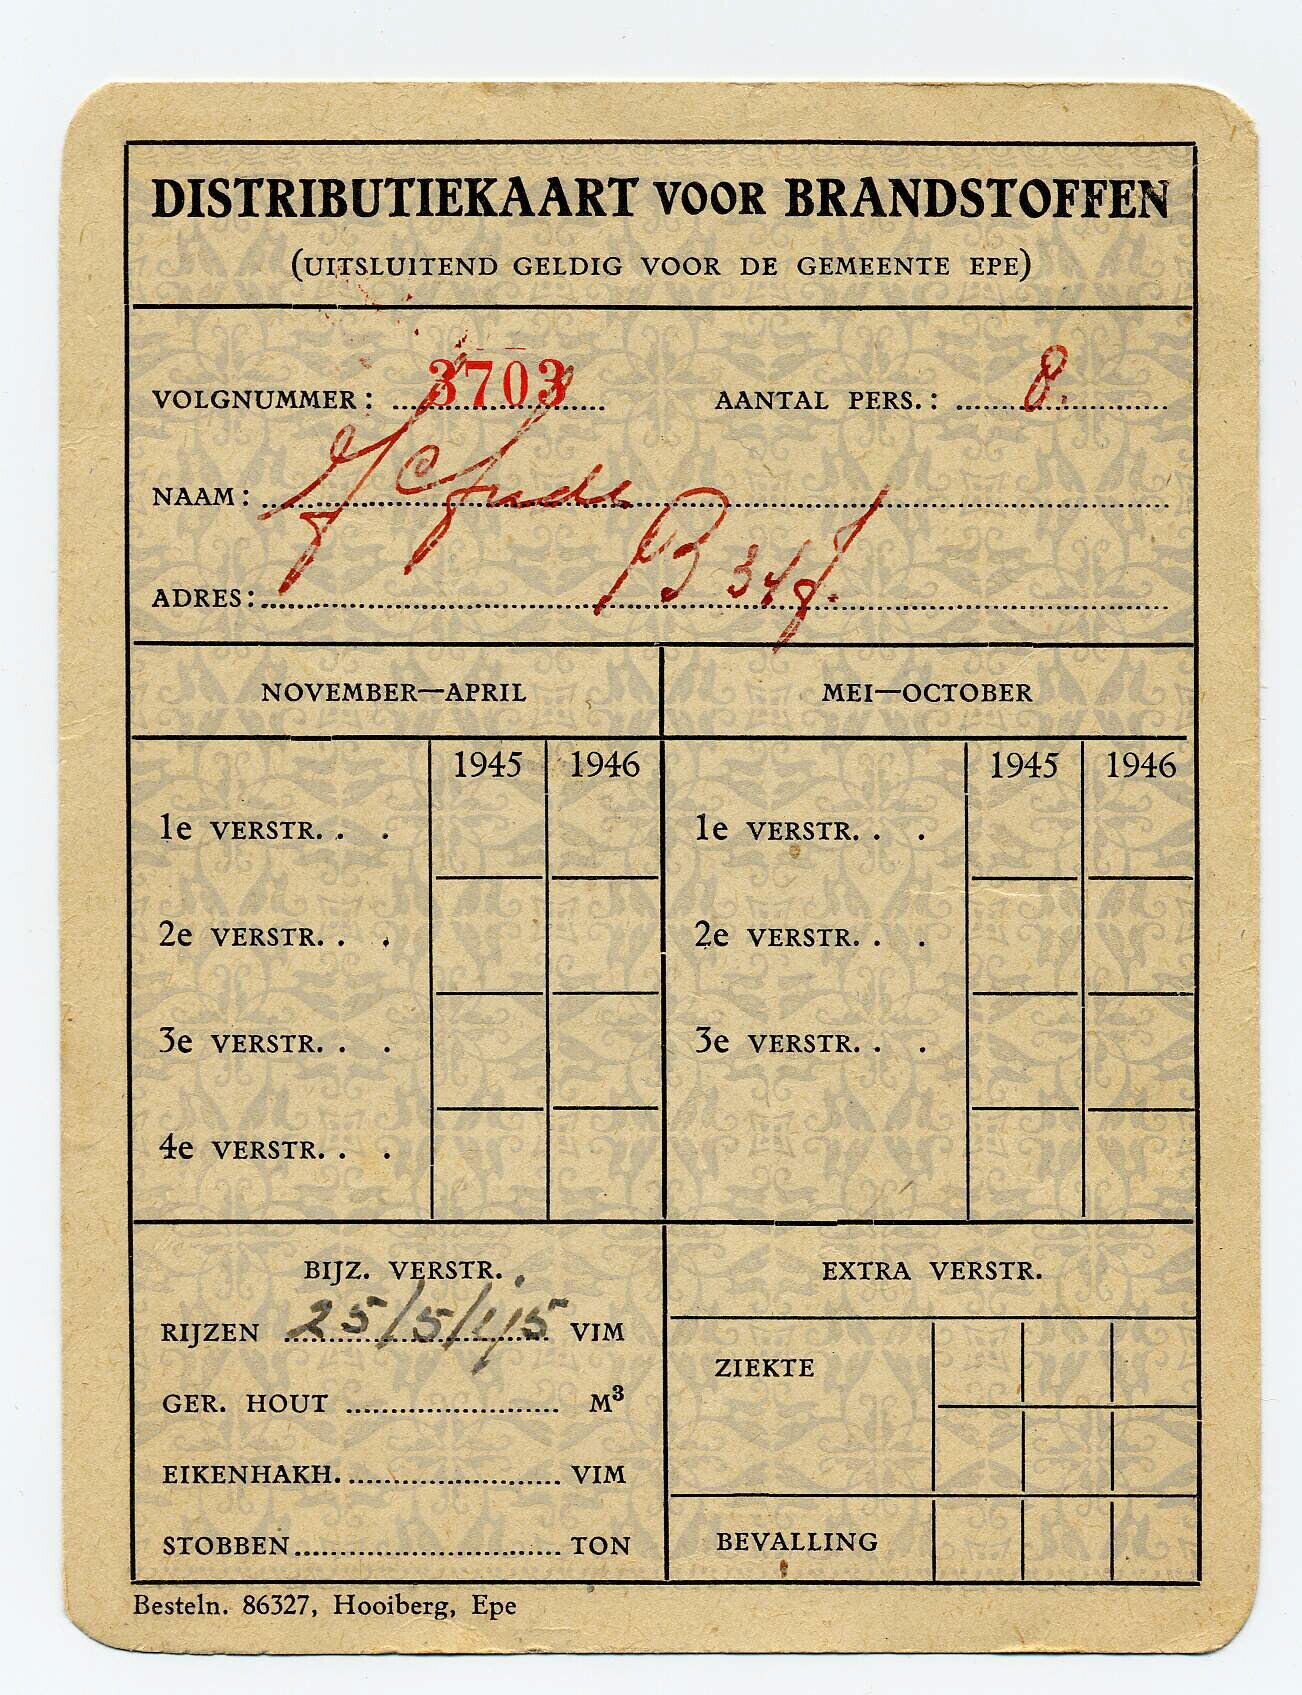 DISTRIBUTIEKAART VOOR BRANDSTOFFEN
(UITSLUITEND GELDIG VOOR DE GEMEENTE EPE)
VOLGNUMMER: 3703 AANTAL PERS.: 8.
NAAM:
ADRES: B 34
NOVEMBER—APRIL MEI—OCTOBER
1945 1946 1945 1946
1e VERSTR. . . 1e VERSTR. . .
2e VERSTR. . . 2e VERSTR. . .
3e VERSTR. . . 3e VERSTR. . .
4e VERSTR. . .
BIJZ. VERSTR. EXTRA VERSTR.
RIJZEN 25/5/45 VIM
ZIEKTE
GER. HOUT M³
EIKENHAKH. VIM
BEVALLING
STOBBEN TON
Besteln. 86327, Hooiberg, Epe